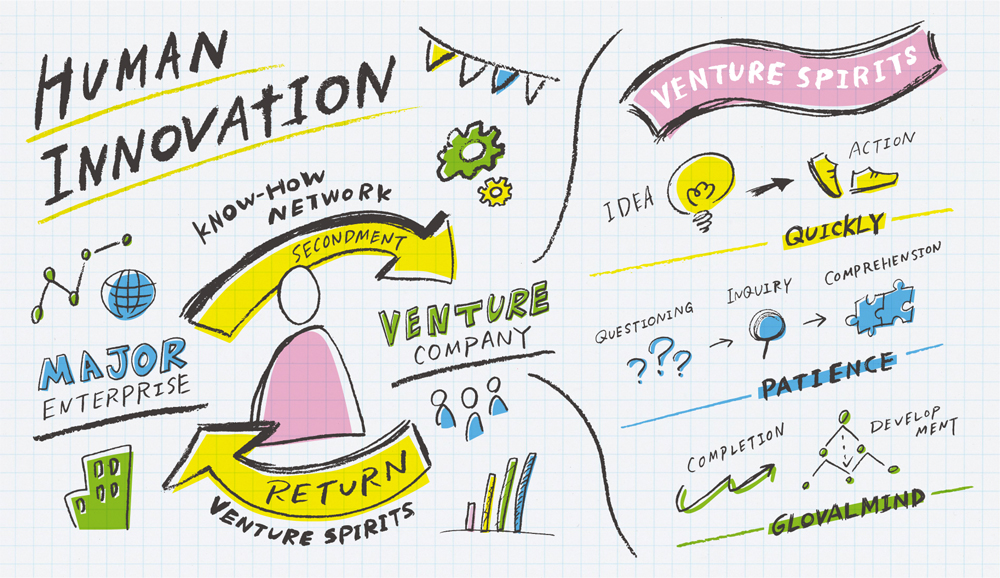 HUMAN
INNOVATION
KNOW-HOW
NETWORK
SECONDMENT
MAJOR
ENTERPRISE
VENTURE
COMPANY
RETURN
VENTURE SPIRITS
VENTURE SPIRITS
IDEA
ACTION
QUICKLY
QUESTIONING
INQUIRY
COMPREHENSION
???
PATIENCE
COMPLETION
DEVELOP
MENT
GLOVALMIND